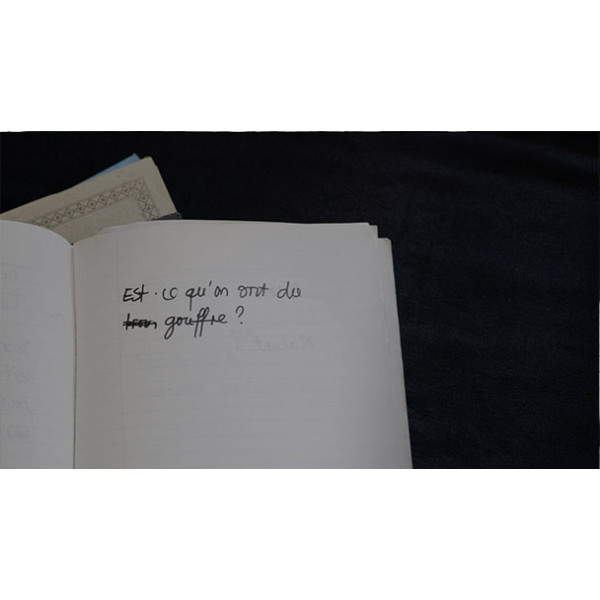 Est-ce qu'on sort du
trou gouffre ?